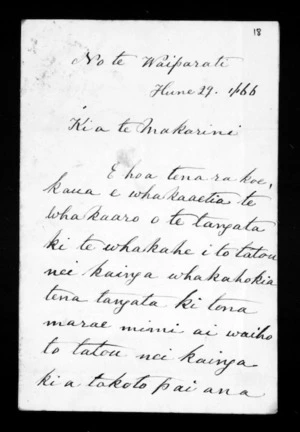 18
No te Waiparati
Hune 29. 1866
Ki a te Makarini
E hoa tena ra koe,
kaua e whakaaetia te
whakaaro o te tangata
ki te whakahe i to tatou
nei kainga whakahokia
tena tangata ki tona
marae mimi ai waiho
to tatou nei kainga
ki a takoto pai ana